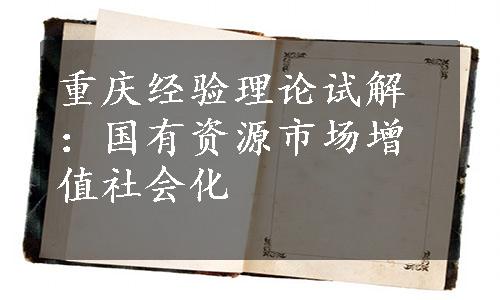 重庆经验理论试解
：国有资源市场增
值社会化